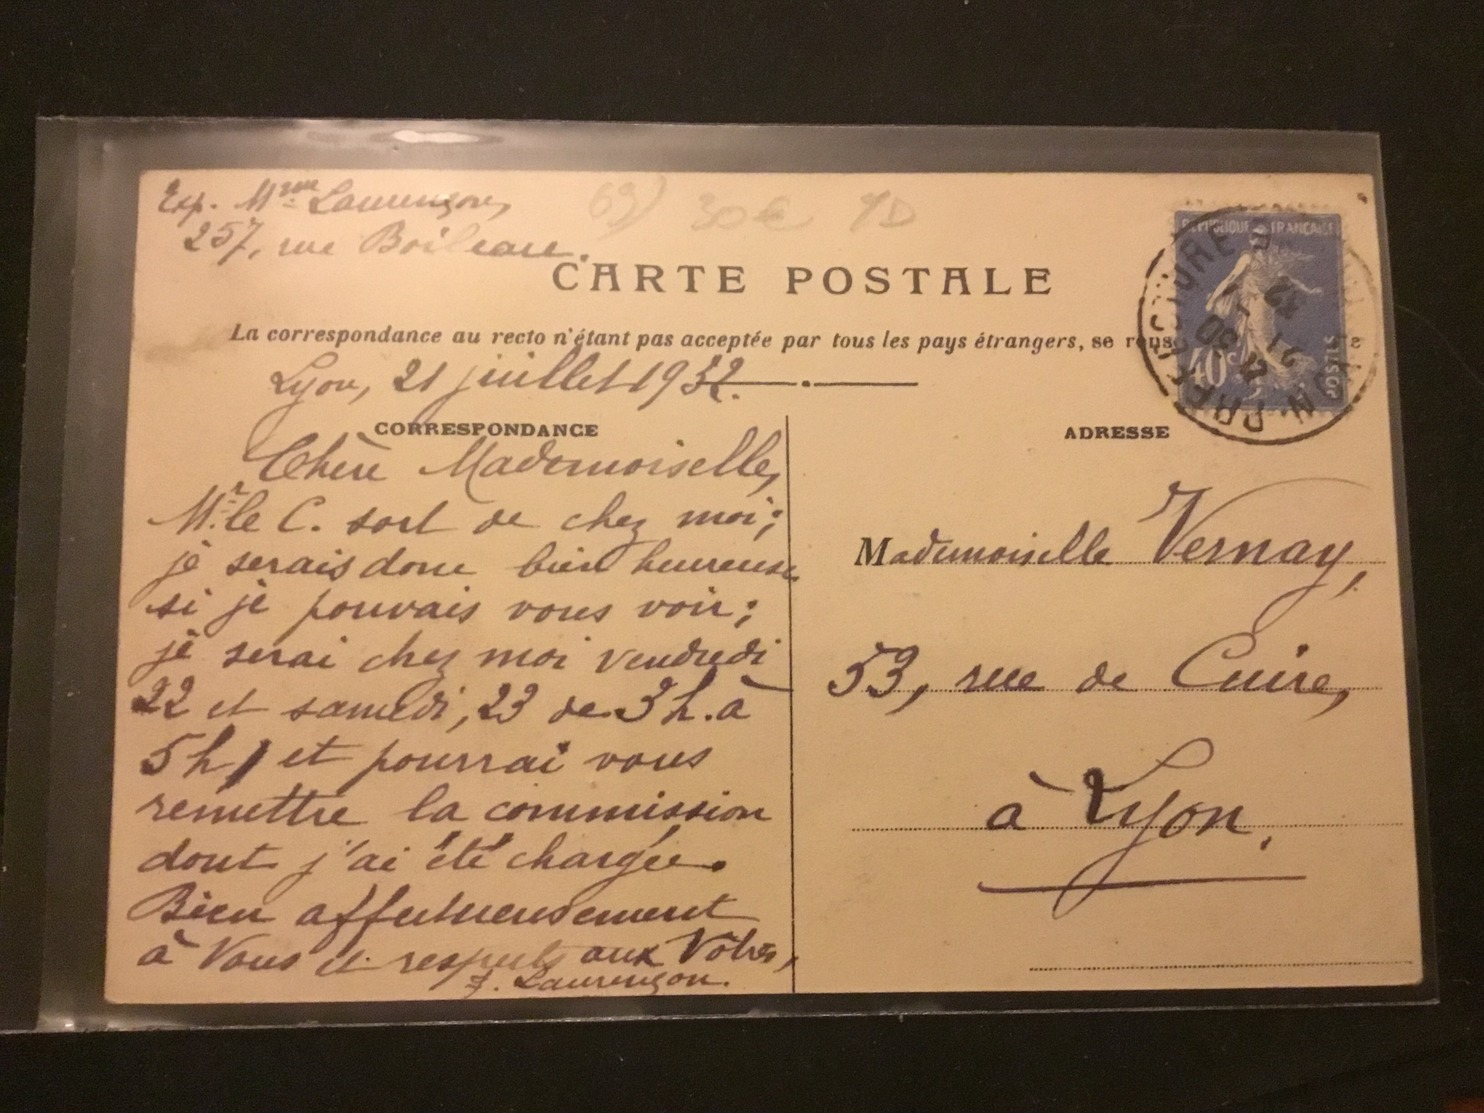 Exp. Mme Laurençon,
257, rue Boileau.
69) 30€
CARTE POSTALE
La correspondance au recto n'étant pas acceptée par tous les pays étrangers, se rense
Lyon, 21 juillet 1932.
CORRESPONDANCE
Chère Mademoiselle,
Mr. le C. sort de chez moi;
je serais donc bien heureuse
si je pouvais vous voir;
je serai chez moi vendredi
22 et samedi, 23 de 3h. à
5h, et pourrai vous
remettre la commission
dont j'ai été chargée.
Bien affectueusement
à Vous et respects aux Vôtres,
F. Laurençon.
REPUBLIQUE FRANÇAISE
40c
POSTES
ADRESSE
Mademoiselle Vernay,
53, rue de Cuire,
à Lyon.